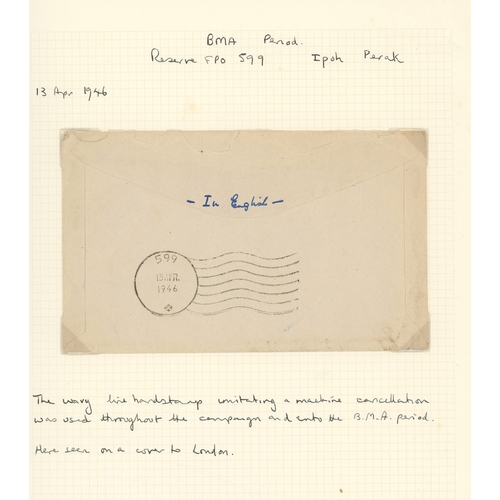 BMA Period.
Reserve FPO 599 Ipoh Perak
13 Apr 1946
- In English -
599
13 APL
1946
The wavy line handstamp imitating a machine cancellation
was used throughout the campaign and into the B.M.A. period.
Here seen on a cover to London.